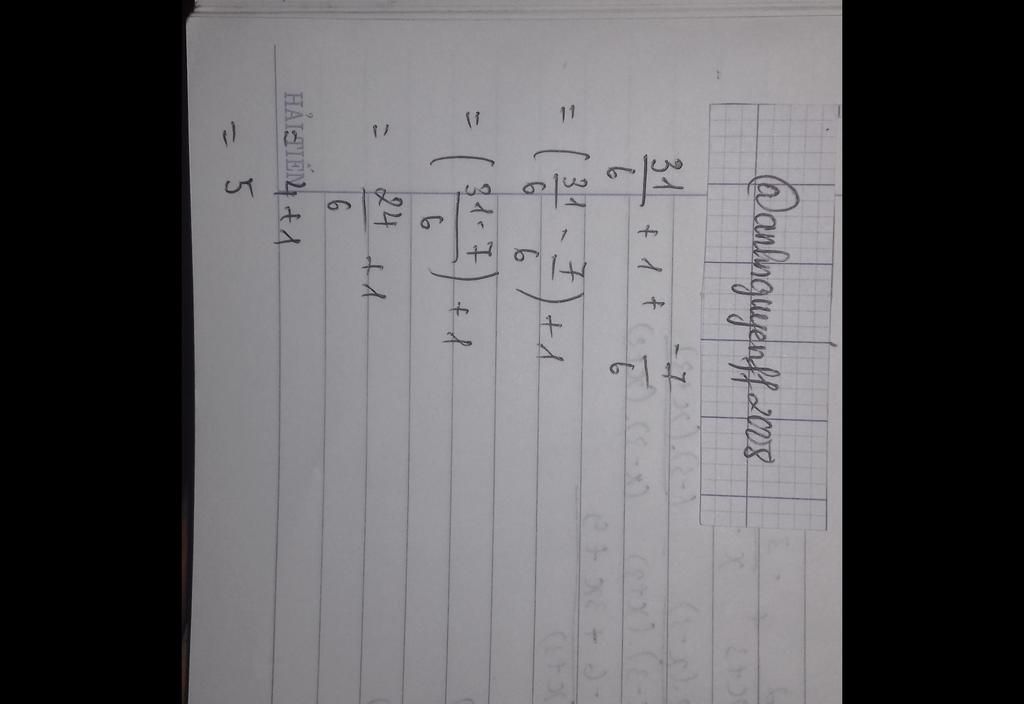 @anhnguyenff2008
31/6 + 1 + -7/6
= (31/6 - 7/6) + 1
= (31-7/6) + 1
= 24/6 + 1
= 4 + 1
= 5
HẢI TIẾN